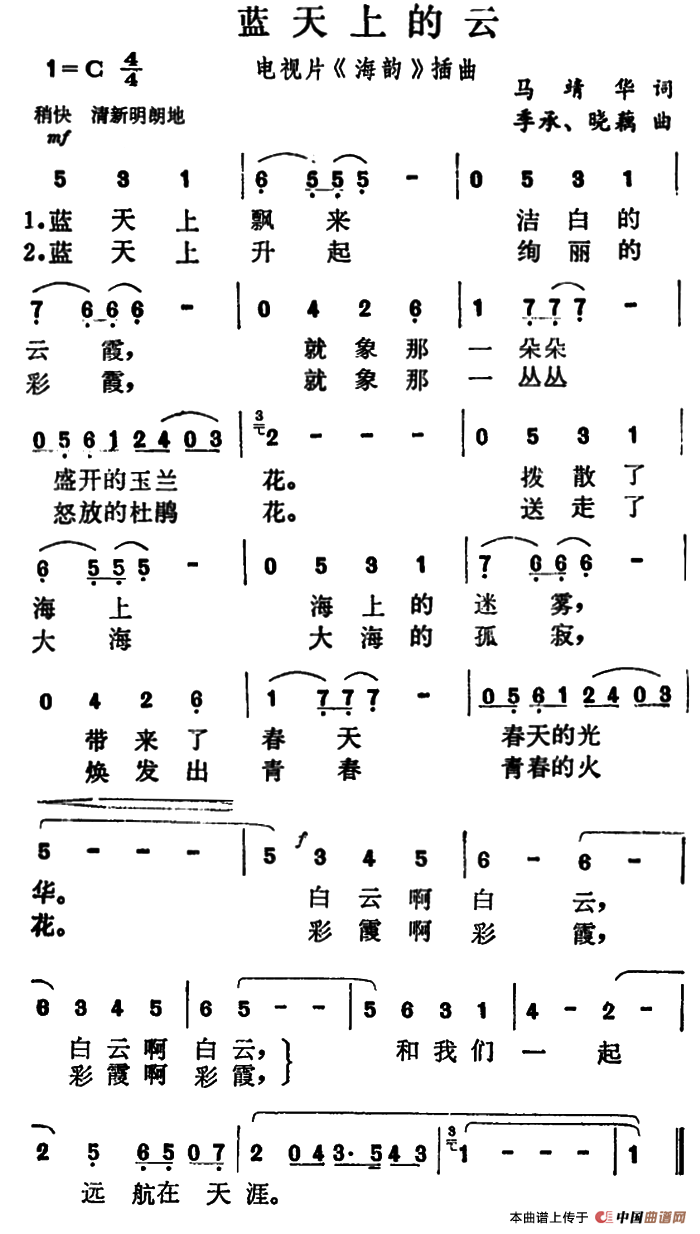 蓝天上的云
1=C 4/4
电视片《海韵》插曲
马靖华 词
稍快 清新明朗地
季承、晓藕 曲
mf
5 3 1 | 6 5 5 5 - | 0 5 3 1 |
1.蓝天上 飘来 洁白的
2.蓝天上 升起 绚丽的
7 6 6 6 - | 0 4 2 6 | 1 7 7 7 - |
云霞, 就象那 一朵朵
彩霞, 就象那 一丛丛
0 5 6 1 2 4 0 3 | 3 2 - - - | 0 5 3 1 |
盛开的玉兰 花。 拨散了
怒放的杜鹃 花。 送走了
6 5 5 5 - | 0 5 3 1 | 7 6 6 6 - |
海上 海上的 迷雾,
大海 大海的 孤寂,
0 4 2 6 | 1 7 7 7 - | 0 5 6 1 2 4 0 3 |
带来了 春天 春天的光
焕发出 青春 青春的火
5 - - - | 5 f 3 4 5 | 6 - 6 - |
华。 白云啊 白云,
花。 彩霞啊 彩霞,
6 3 4 5 | 6 5 - - | 5 6 3 1 | 4 - 2 - |
白云啊 白云,} 和我们 一起
彩霞啊 彩霞,
2 5 6 5 0 7 | 2 0 4 3· 5 4 3 | 3 1 - - - | 1 ‖
远航在天涯。
本曲谱上传于 中国曲谱网